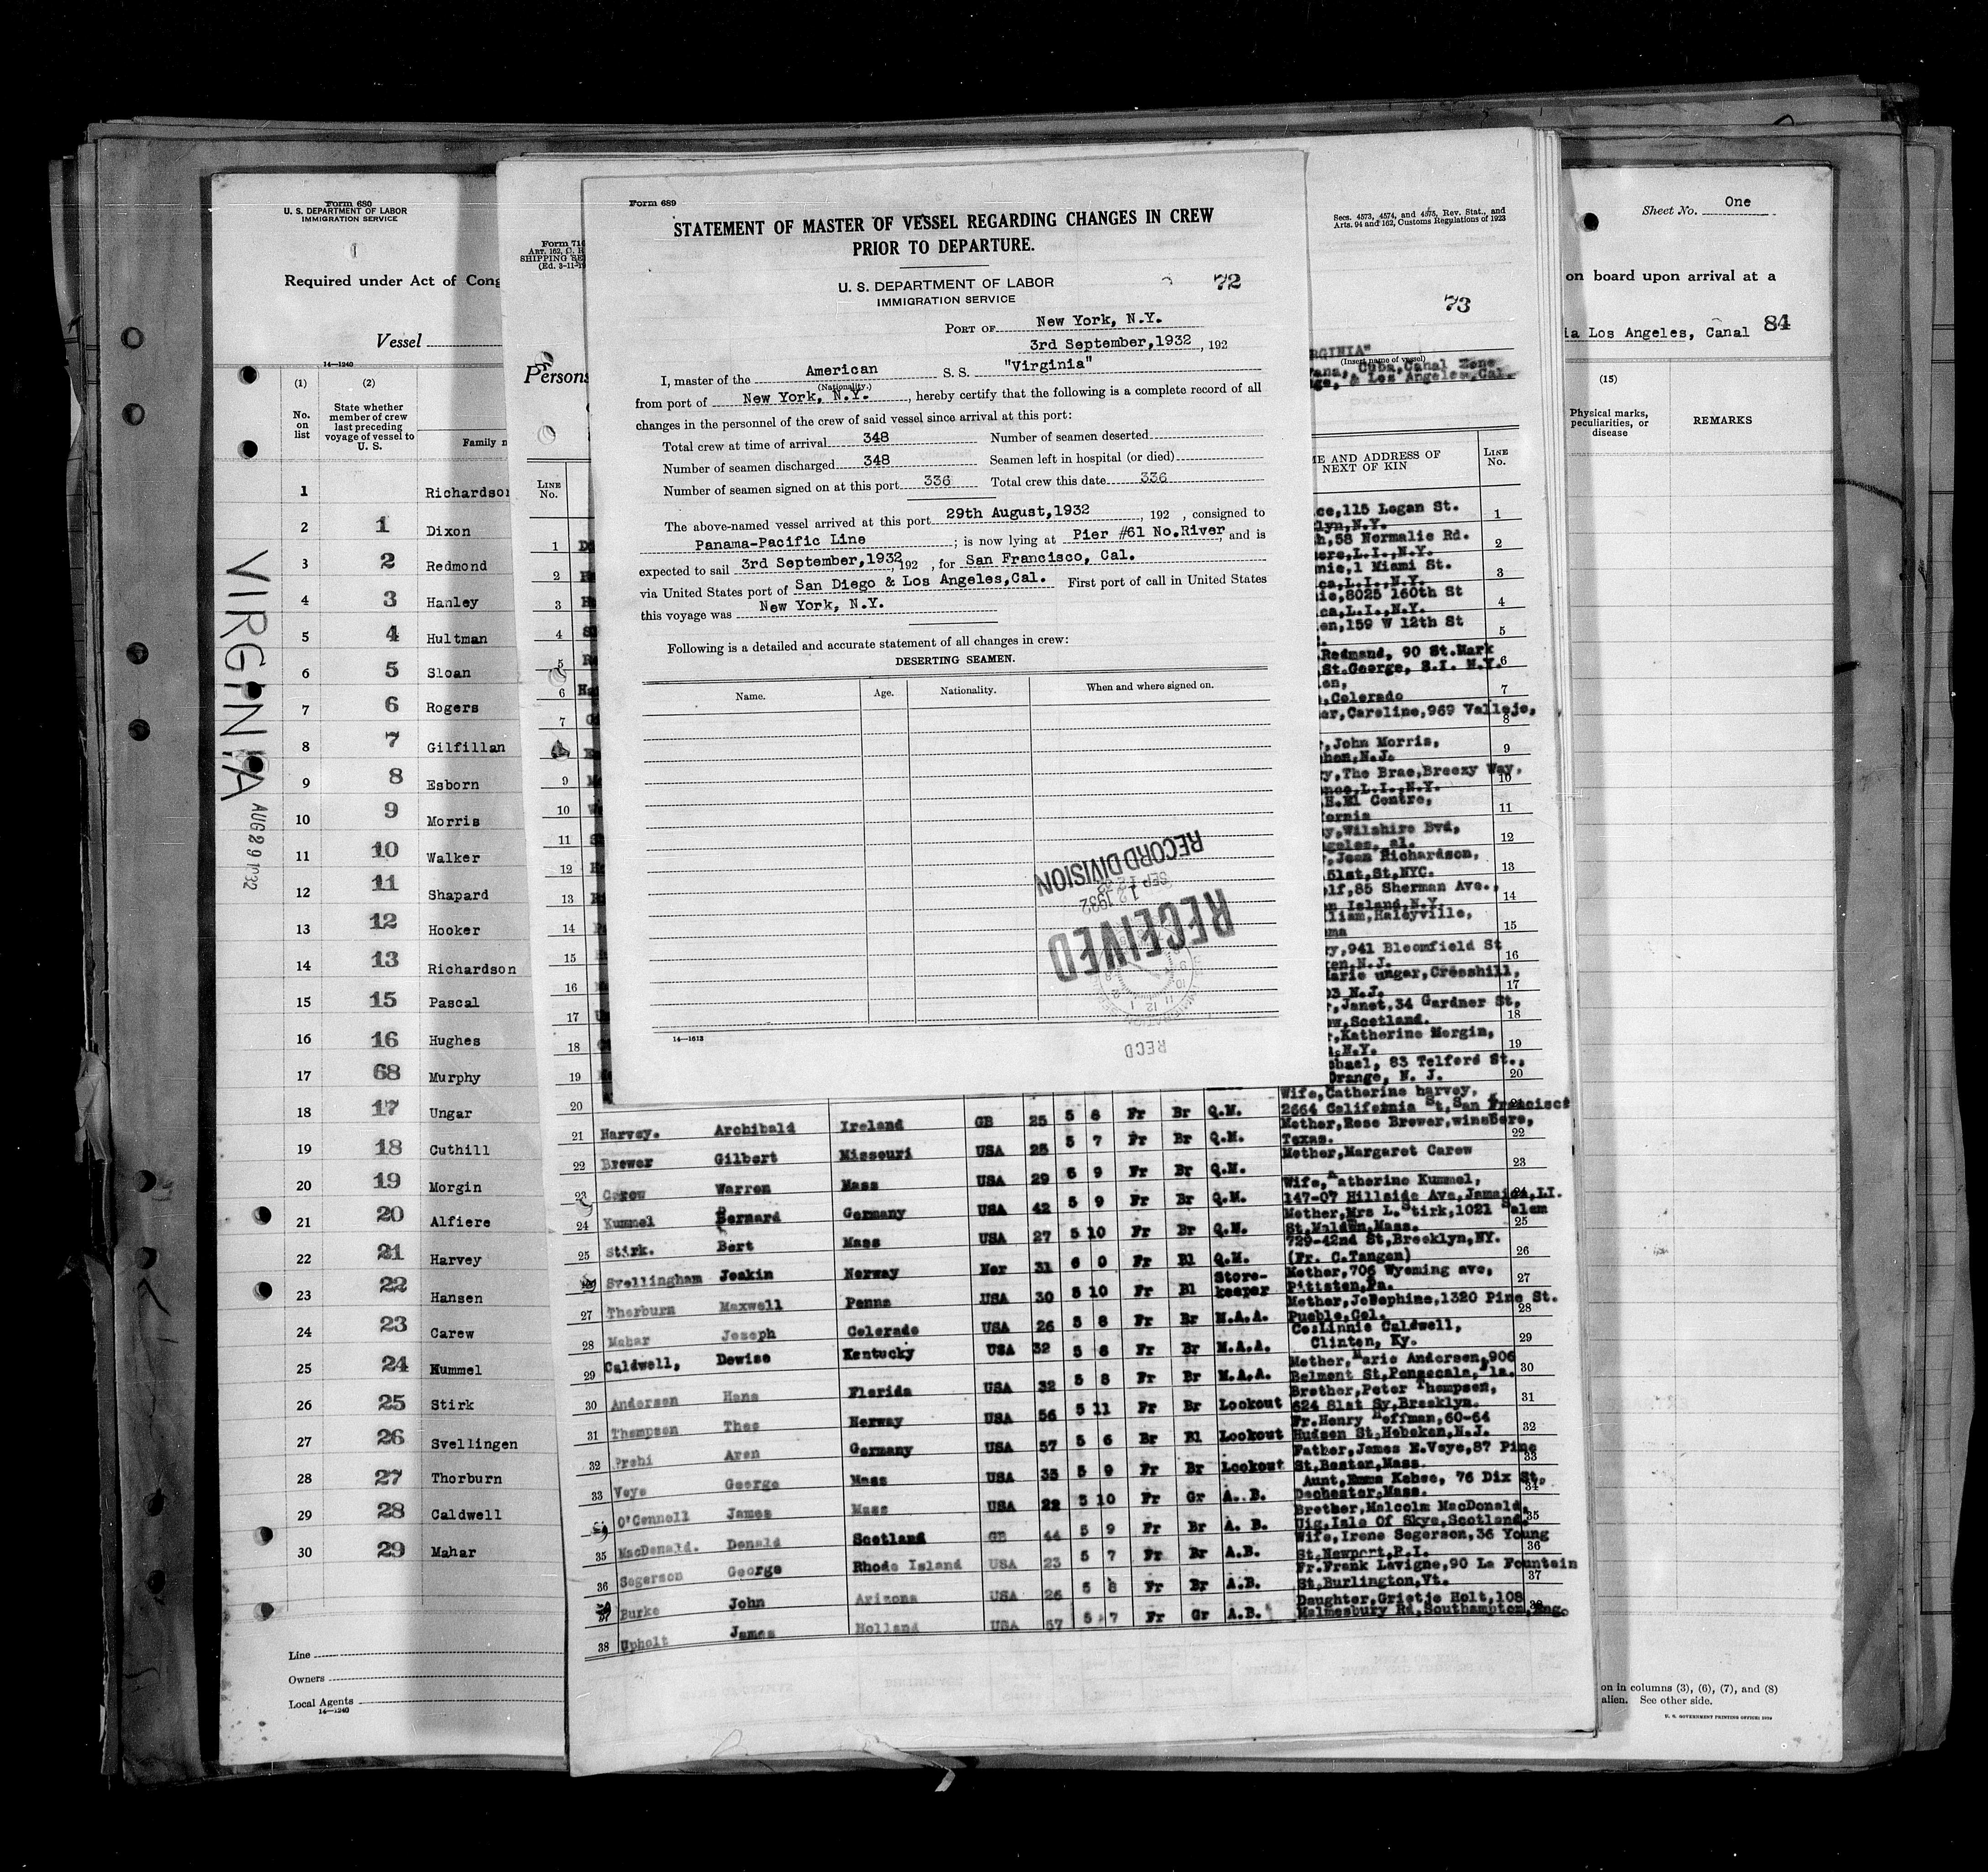 Form 680
U. S. DEPARTMENT OF LABOR
IMMIGRATION SERVICE
Required under Act of Cong
Vessel
14—1240
(1)
(2)
No. on list
State whether member of crew last preceding voyage of vessel to U. S.
Family n
1 Richardso
2 1 Dixon
3 2 Redmond
4 3 Hanley
5 4 Hultman
6 5 Sloan
7 6 Rogers
8 7 Gilfillan
9 8 Esborn
10 9 Morris
11 10 Walker
12 11 Shapard
13 12 Hooker
14 13 Richardson
15 15 Pascal
16 16 Hughes
17 68 Murphy
18 17 Ungar
19 18 Cuthill
20 19 Morgin
21 20 Alfiere
22 21 Harvey
23 22 Hansen
24 23 Carew
25 24 Kummel
26 25 Stirk
27 26 Svellingen
28 27 Thorburn
29 28 Caldwell
30 29 Mahar
VIRGINIA
AUG 29 1932
Line
Owners
Local Agents
14—1240
Form 710
ART. 162, C. R
SHIPPING SE
(Ed. 3-11-19
Persons
LINE No.
Form 689
STATEMENT OF MASTER OF VESSEL REGARDING CHANGES IN CREW
PRIOR TO DEPARTURE.
U. S. DEPARTMENT OF LABOR
IMMIGRATION SERVICE
72
PORT OF New York, N.Y.
3rd September,1932, 192
I, master of the American S. S. "Virginia"
(Nationality.)
from port of New York, N.Y., hereby certify that the following is a complete record of all
changes in the personnel of the crew of said vessel since arrival at this port:
Total crew at time of arrival 348 Number of seamen deserted
Number of seamen discharged 348 Seamen left in hospital (or died)
Number of seamen signed on at this port 336 Total crew this date 336
The above-named vessel arrived at this port 29th August,1932, 192 , consigned to
Panama-Pacific Line; is now lying at Pier #61 No.River, and is
expected to sail 3rd September,1932, 192 , for San Francisco, Cal.
via United States port of San Diego & Los Angeles,Cal. First port of call in United States
this voyage was New York, N.Y.
Following is a detailed and accurate statement of all changes in crew:
DESERTING SEAMEN.
Name. Age. Nationality. When and where signed on.
RECORD DIVISION
SEP 12 1932
RECEIVED
REC'D
14—1613
Secs. 4573, 4574, and 4575, Rev. Stat., and
Arts. 94 and 162, Customs Regulations of 1923
73
RGINIA"
(Insert name of vessel)
ana, Cuba,Canal Zone
ge, & Los Angeles,Cal.
ME AND ADDRESS OF
NEXT OF KIN
LINE No.
ce,115 Logan St. 1
lyn,N.Y.
h,58 Normalie Rd. 2
ere,L.I.,N.Y.
nie,1 Miami St. 3
ca,L.I.,N.Y.
ie,8025 160th St 4
ca,L.I.,N.Y.
en,159 W 12th St 5
Redmand, 90 St.Mark
St.George, S.I. N.Y. 6
en, 7
,Colorado
ar,Caroline,969 Vallejo, 8
,John Morris, 9
hen,N.J.
y,The Brae,Breezy Way, 10
nce,L.I.,N.Y.
H.El Centre, 11
fornia
y,Wilshire Bvd, 12
ngeles, al.
,Jean Richardson, 13
51st,St,NYC.
lf,85 Sherman Ave., 14
n Island,N.Y.
lliam,Haleyville, 15
ma
y,941 Bloomfield St 16
en,N.J.
arie ungar,Cresshill, 17
03 N.J.
,Janet,34 Gardner St, 18
ow,Scotland.
,Katherine Morgin, 19
,N.Y.
chael, 83 Telford St., 20
Orange, N. J.
21 Harvey. Archibald Ireland GB 25 5 8 Fr Br Q.M. Wife,Catherine harvey, 2664 California St,San Francisco
22 Brewer Gilbert Missouri USA 25 5 7 Fr Br Q.M. Mother,Rose Brewer,winsbore, Texas. 22
23 Carew Warren Mass USA 29 5 9 Fr Br Q.M. Mother,Margaret Carew 23
24 Kummel Bernard Germany USA 42 5 9 Fr Br Q.M. Wife,Katherine Kummel, 147-07 Hillside Ave,Jamaica,LI. 24
25 Stirk. Bert Mass USA 27 5 10 Fr Br Q.M. Mother,Mrs L.Stirk,1021 Salem St,Malden,Mass. 25
Svellingham Joakin Norway Nor 31 6 0 Fr Bl Q.M. 729-42nd St,Brooklyn,NY. (Fr. C.Tangen) 26
27 Thorburn Maxwell Penna USA 30 5 10 Fr Bl Store-keeper Mother,706 Wyoming ave, Pittston,Pa. 27
28 Mahar Joseph Colorado USA 26 5 8 Fr Br M.A.A. Mother,Josephine,1320 Pine St. Pueblo,Col. 28
29 Caldwell, Dewise Kentucky USA 32 5 8 Fr Br M.A.A. Co:Linnie Caldwell, Clinton, Ky. 29
30 Andersen Hans Florida USA 32 5 8 Fr Br M.A.A. Mother,Marie Andersen,906 Belmont St,Pensecala,Fla. 30
31 Thompson Theo Norway USA 56 5 11 Fr Br Lookout Brother,Peter Thompsen, 624 81st Sy,Brooklyn. 31
32 Prehi Aren Germany USA 57 5 6 Br Bl Lookout Fr.Henry Hoffman,60-64 Hudsen St,Hoboken,N.J. 32
33 Veye George Mass USA 35 5 9 Fr Br Lookout Father,James E.Veye,87 Pine St,Boston,Mass. 33
O'Connell James Mass USA 22 5 10 Fr Gr A. B. Aunt,Emma Kehoe, 76 Dix St, Dochester,Mass. 34
35 MacDonald. Donald Scotland GB 44 5 9 Fr Br A. B. Brother,Malcolm MacDonald, Uig,Isle Of Skye,Scotland. 35
36 Segerson George Rhode Island USA 23 5 7 Fr Br A.B. Wife,Irene Segerson,36 Young St,Newport,R.I. 36
37 Burke John Arizona USA 26 5 8 Fr Br A.B. Fr.Frank Lavigne,90 La Fountain St,Burlington,Vt. 37
38 Upholt James Holland USA 57 5 7 Fr Gr A.B. Daughter,Grietje Holt,108 Malmesbury Rd,Southampton,Eng. 38
Sheet No. One
on board upon arrival at a
ia Los Angeles, Canal 84
(15)
Physical marks, peculiarities, or disease
REMARKS
on in columns (3), (6), (7), and (8)
alien. See other side.
U. S. GOVERNMENT PRINTING OFFICE: